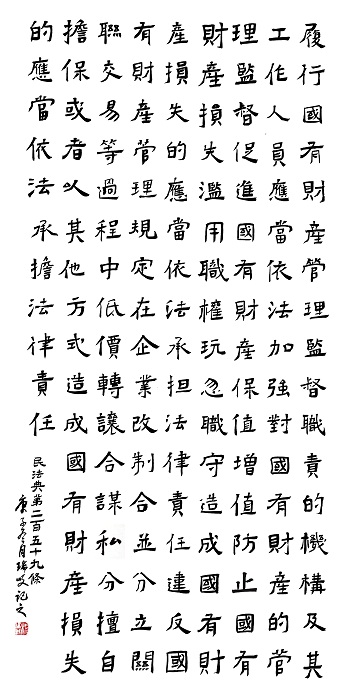 履行國有財產管理監督職責的機構及其
工作人員應當依法加強對國有財產的管
理監督促進國有財產保值增值防止國有
財產損失濫用職權玩忽職守造成國有財
產損失的應當依法承担法律責任違反國
有財產管理規定在企業改制合並分立關
聯交易等過程中低價轉讓合謀私分擅自
擔保或者以其他方式造成國有財產損失
的應當依法承擔法律責任
民法典第二百五十九條
庚子冬月瑞記之